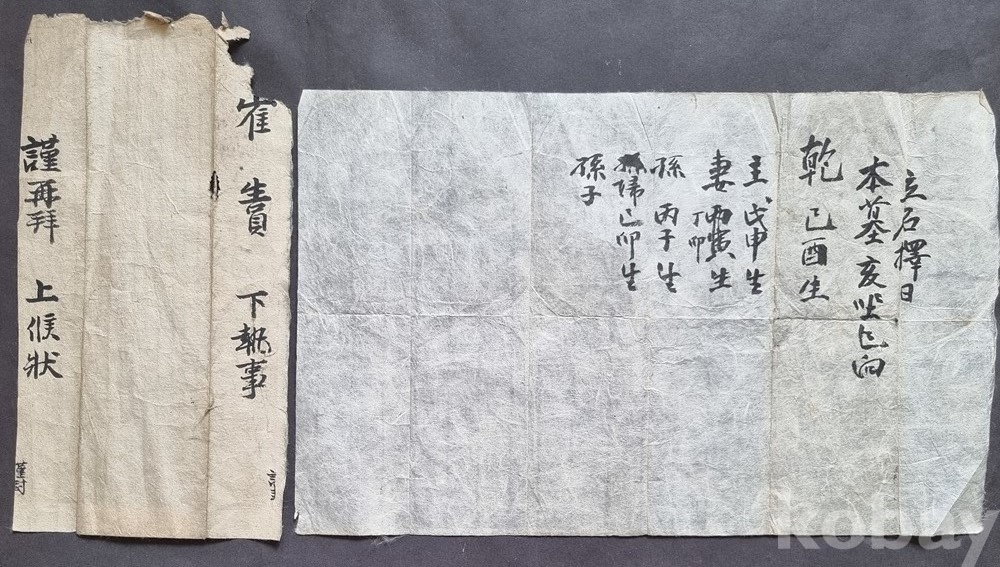 立石擇日
本墓亥坐巳向
乾 己酉生
主 戊申生
妻 丙寅生
丁卯
孫 丙子生
孫婦己卯生
孫子
崔 生員 下執事
謹再拜 上候狀
謹封
kobuy